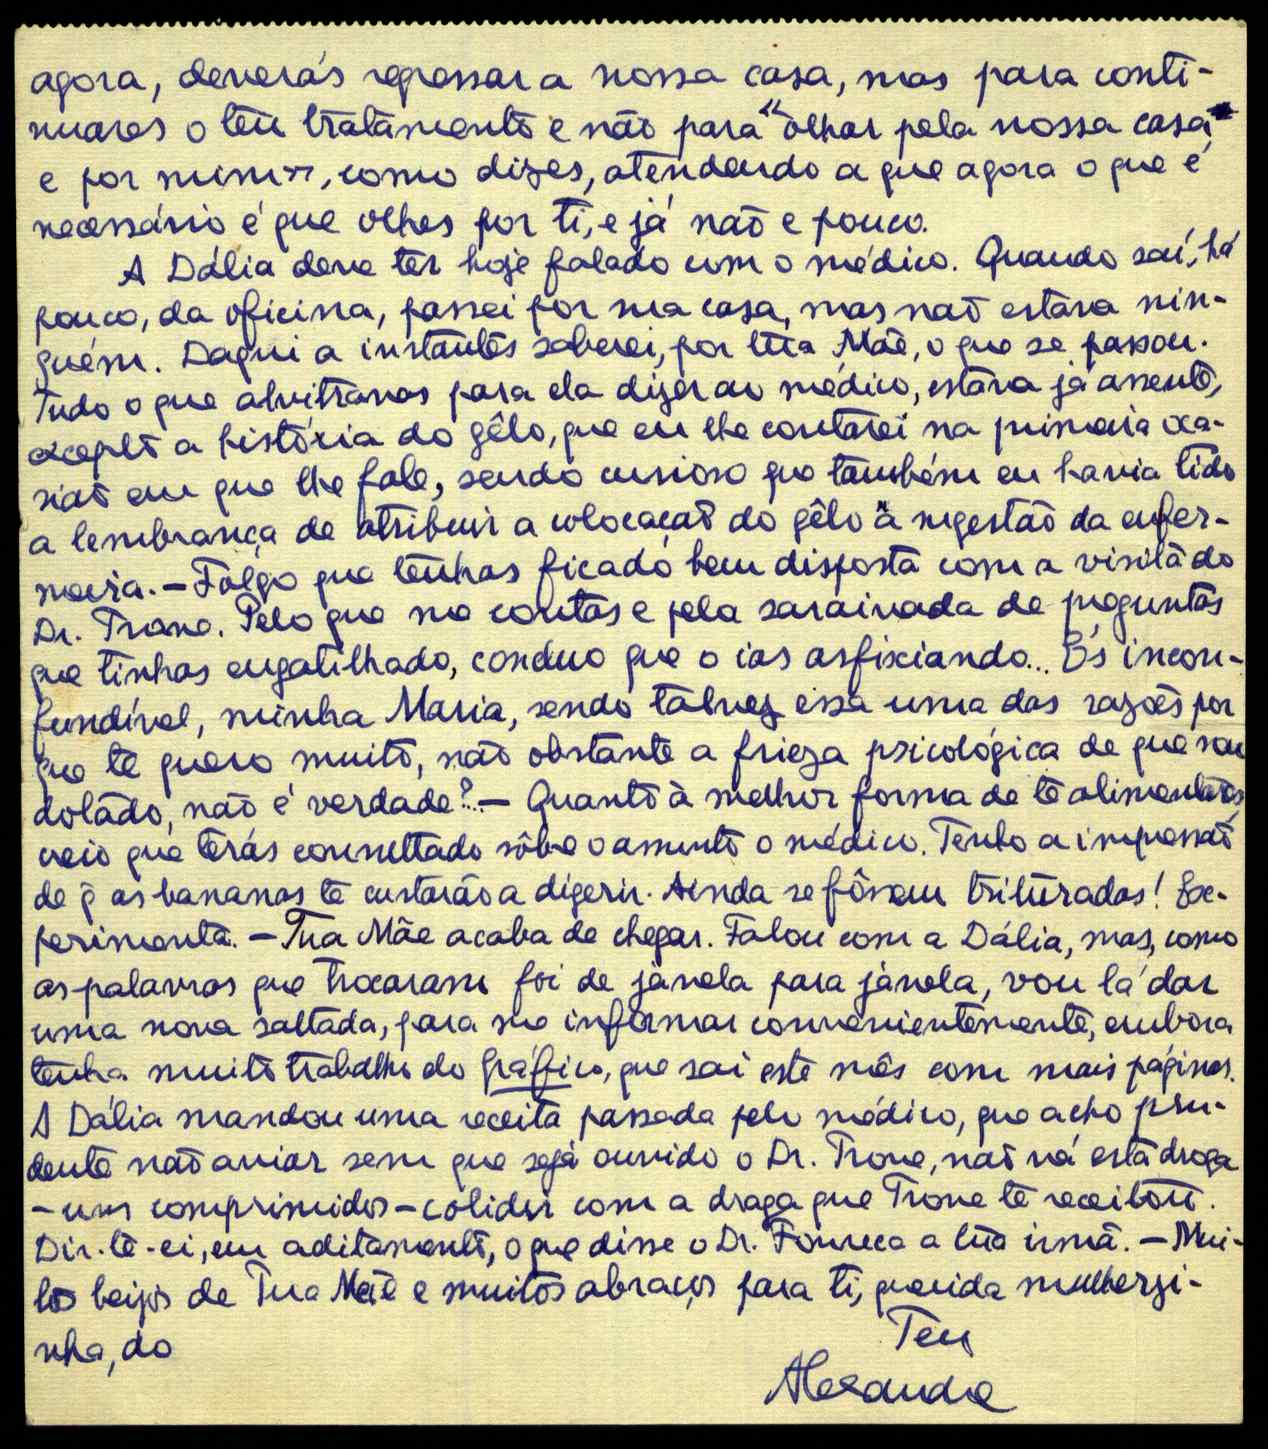 agora, deverás regressar a nossa casa, mas para conti-
nuares o teu tratamento e não para "olhar pela nossa casa
e por mim", como dizes, atendendo a que agora o que é
necessário é que olhes por ti, e já não e pouco.
A Dália deve ter hoje falado com o médico. Quando saí, há
pouco, da oficina, passei por sua casa, mas não estava nin-
guém. Daqui a instantes saberei, por tua Mãe, o que se passou.
Tudo o que alvitravas para ela dizer ao médico, estava já assente,
excepto a história do gêlo, que eu lhe contarei na primeira oca-
sião em que lhe fale, sendo curioso que também eu havia tido
a lembrança de atribuir a colocação do gêlo à sugestão da enfer-
meira. — Folgo que tenhas ficado bem disposta com a visita do
Dr. Trone. Pelo que me contas e pela saraivada de preguntas
que tinhas engatilhado, concluo que o ias asfixiando... És incon-
fundível, minha Maria, sendo talvez essa uma das razões por
que te quero muito, não obstante a frieza psicológica de que sou
dotado, não é verdade?.. — Quanto à melhor forma de te alimentares,
creio que terás consultado sôbre o assunto o médico. Tenho a impressão
de q̃ as bananas te custarão a digerir. Ainda se fôssem trituradas! Ex-
perimenta. — Tua Mãe acaba de chegar. Falou com a Dália, mas, como
as palavras que trocaram foi de janela para janela, vou lá dar
uma nova saltada, para me informar convenientemente, embora
tenha muito trabalho do Gráfico, que sai este mês com mais páginas.
A Dália mandou uma receita passada pelo médico, que acho pru-
dente não aviar sem que seja ouvido o Dr. Trone, não vá esta droga
- uns comprimidos - colidir com a droga que Trone te receitou.
Dir-te-ei, em aditamento, o que disse o Dr. Fonseca a tua irmã. — Mui-
tos beijos de Tua Mãe e muitos abraços para ti, querida mulherzi-
nha, do
Teu
Alexandre